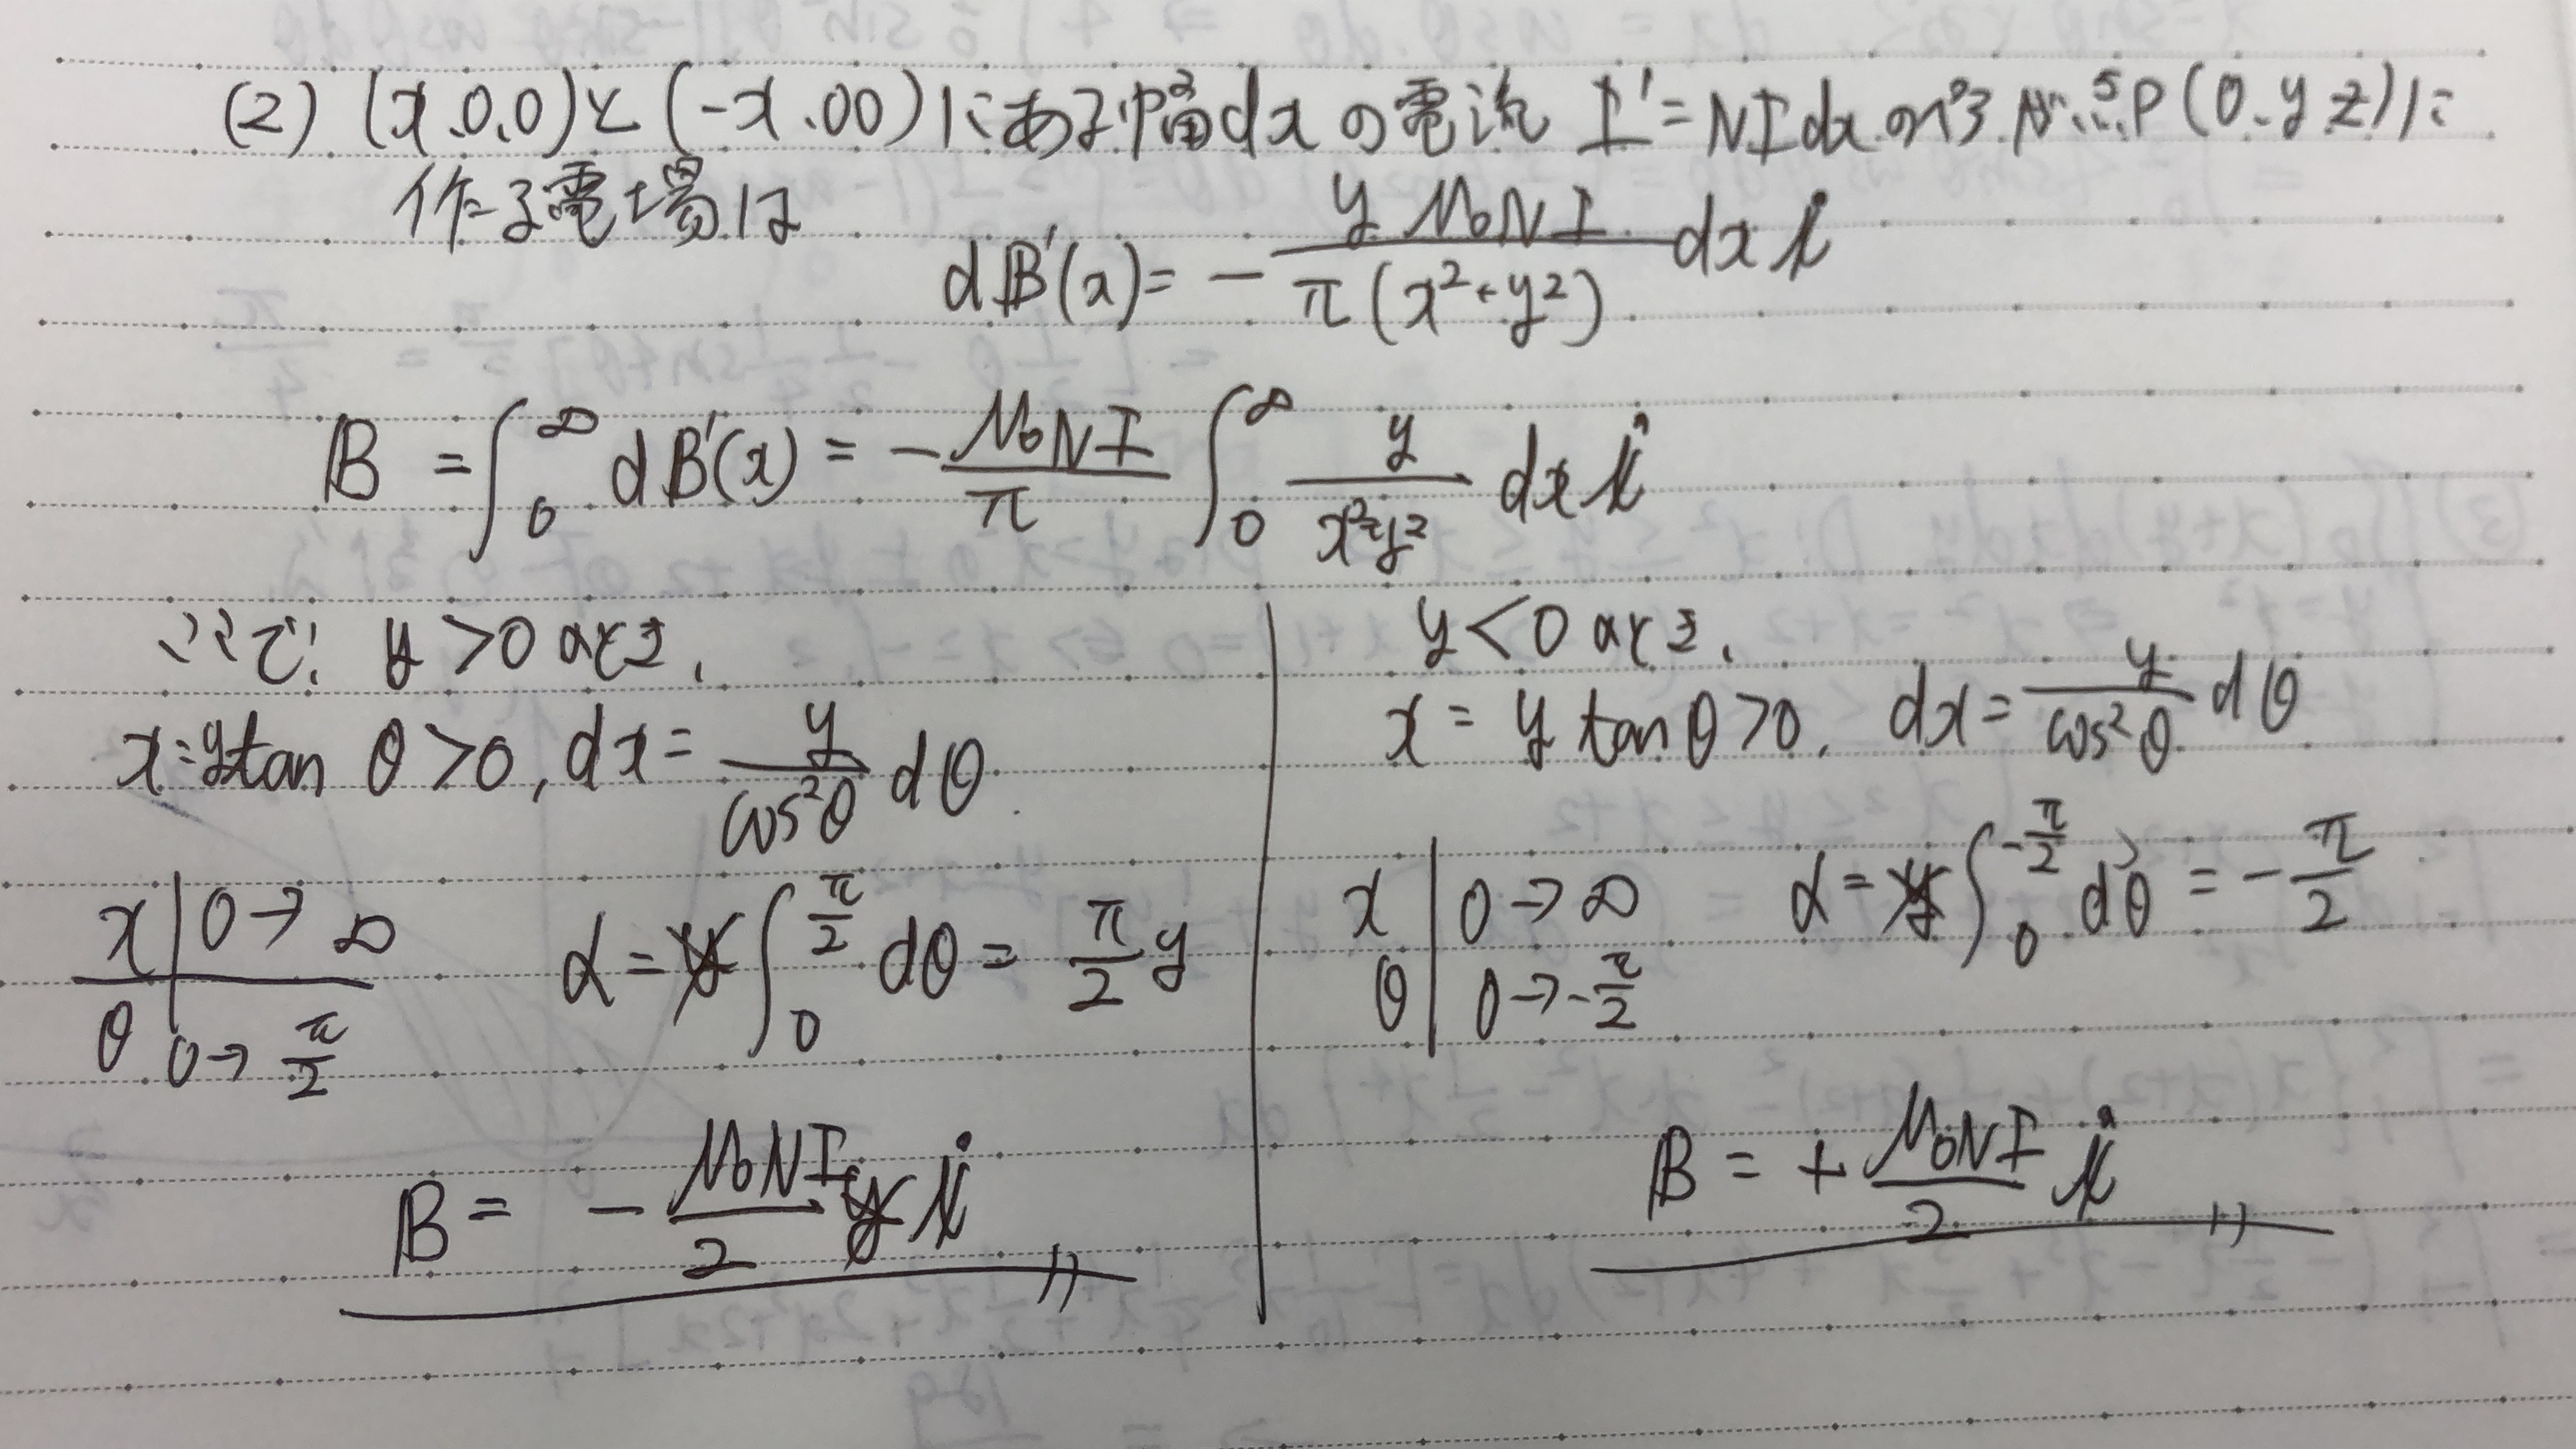 (2) (x.0.0)と(-x.00)にある幅dxの電流 I'=NIdxのペアが点P(0.y z)に
作る電場は
dB'(x)= - yμ₀NI / π(x²+y²) dx i
B = ∫₀^∞ dB'(x) = - μ₀NI/π ∫₀^∞ y/(x²+y²) dx i
ここで、y>0のとき、
x=ytanθ>0, dx= y/cos²θ dθ.
x | 0→∞
θ | 0→π/2
α=∫₀^(π/2) dθ= π/2 y
B= - μ₀NI/2 i
y<0のとき、
x = y tanθ>0, dx= y/cos²θ dθ
x | 0→∞
θ | 0→-π/2
α=∫₀^(-π/2) dθ = -π/2
B = + μ₀NI/2 i